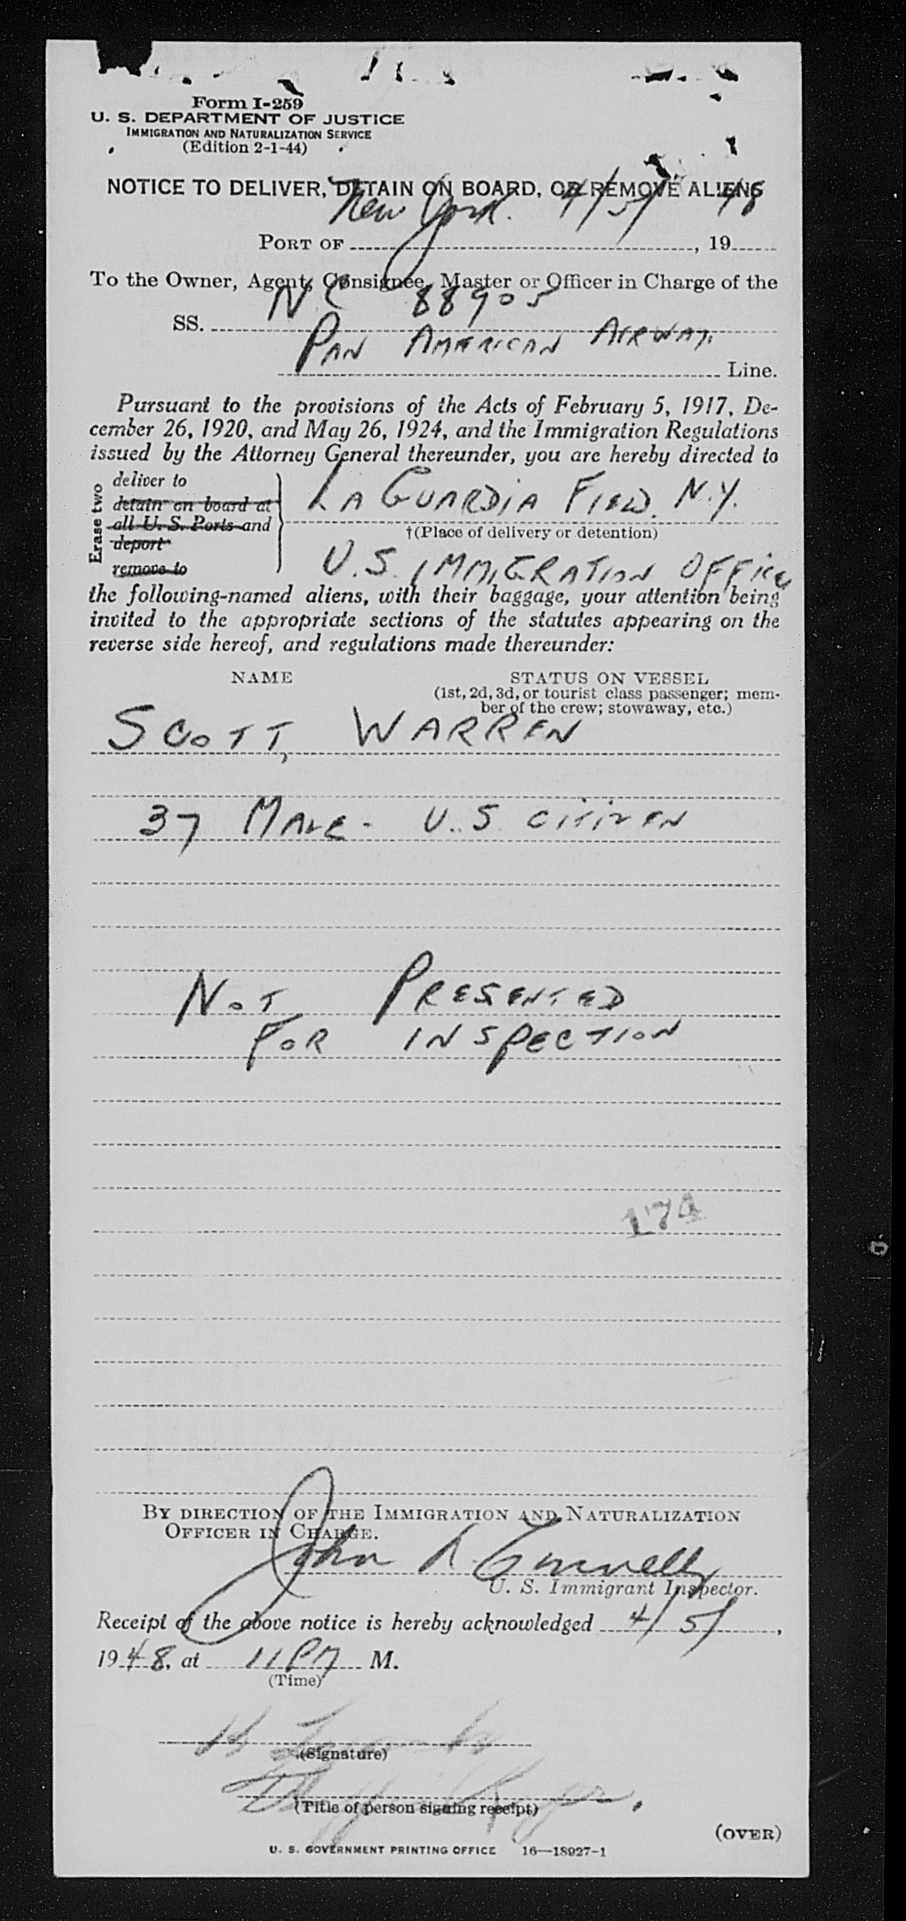 Form I-259
U. S. DEPARTMENT OF JUSTICE
IMMIGRATION AND NATURALIZATION SERVICE
(Edition 2-1-44)
NOTICE TO DELIVER, DETAIN ON BOARD, OR REMOVE ALIENS
PORT OF New York. 4/5/, 19 48
To the Owner, Agent, Consignee, Master or Officer in Charge of the
SS. NC 88905
PAN AMERICAN AIRWAYS Line.
Pursuant to the provisions of the Acts of February 5, 1917, De-
cember 26, 1920, and May 26, 1924, and the Immigration Regulations
issued by the Attorney General thereunder, you are hereby directed to
Erase two
deliver to
detain on board at
all U. S. Ports and
deport
remove to
LA GUARDIA FIELD. N.Y.
†(Place of delivery or detention)
U.S. IMMIGRATION OFFICE
the following-named aliens, with their baggage, your attention being
invited to the appropriate sections of the statutes appearing on the
reverse side hereof, and regulations made thereunder:
NAME STATUS ON VESSEL
(1st, 2d, 3d, or tourist class passenger; mem-
ber of the crew; stowaway, etc.)
SCOTT, WARREN
37 MALE - U.S CITIZEN
NOT PRESENTED
FOR INSPECTION
174
BY DIRECTION OF THE IMMIGRATION AND NATURALIZATION
OFFICER IN CHARGE.
John
U. S. Immigrant Inspector.
Receipt of the above notice is hereby acknowledged 4/5/,
1948, at 11 PM M.
(Time)
(Signature)
(Title of person signing receipt)
(OVER)
U. S. GOVERNMENT PRINTING OFFICE 16—18927-1